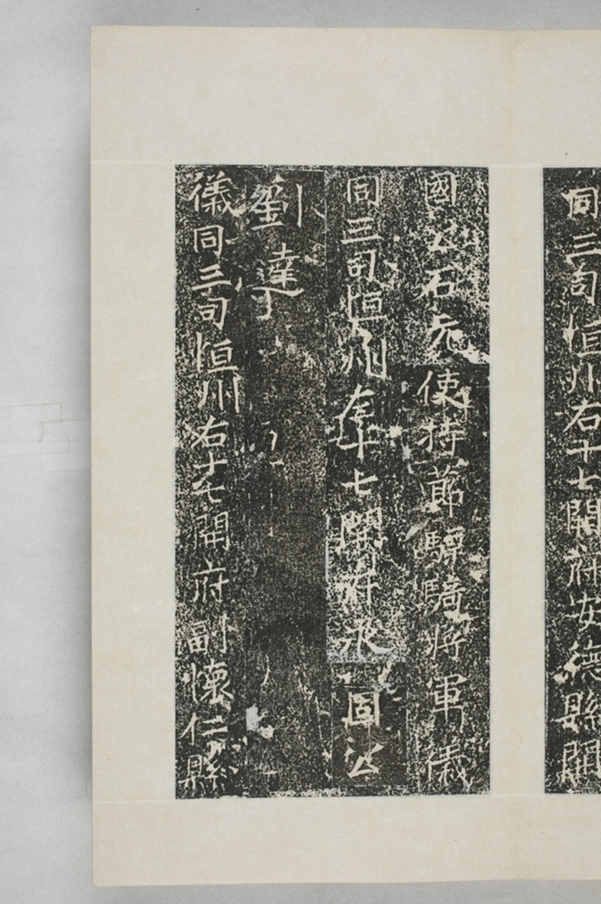 同三司恒州右十七開府安德縣開
國公石元使持莭驃騎將軍儀
同三司恒州右十七開府永固公
劉達
儀同三司恒州右十七開府副懷仁縣